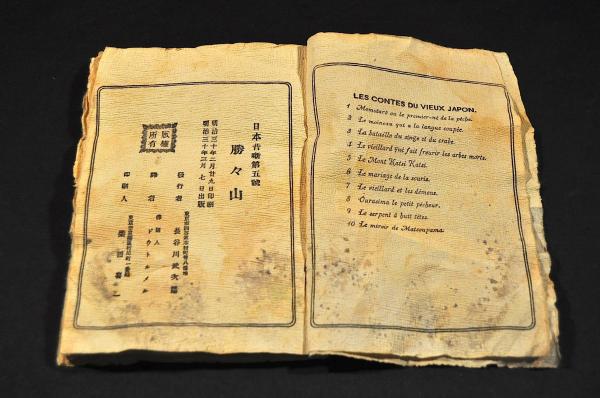 日本昔噺第五號
勝々山
明治三十年二月廿九日印刷
明治三十年三月七日出版
發行者 長谷川武次郎
譯者 ドウトルメル
印刷人 柴田喜一
版權
所有
LES CONTES DU VIEUX JAPON.
1 Momotaro ou le premier-né de la pêche.
2 Le moineau qui a la langue coupée.
3 La bataille du singe et du crabe.
4 Le vieillard qui fait fleurir les arbes morts.
5 Le Mont Katsi Katsi.
6 Le mariage de la souris.
7 Le vieillard et les démons.
8 Ourasima le petit pêcheur.
9 Le serpent à huit têtes.
10 Le miroir de Matsouyama.